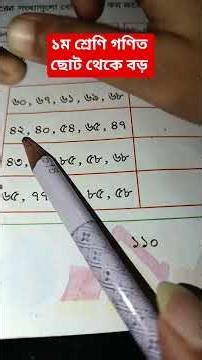 ১ম শ্রেণি গণিত
ছোট থেকে বড়
সংখ্যাগুলো ছোট থেকে বড়
৬০, ৬৭, ৬১, ৬৯, ৬৮
৪২, ৪০, ৫৪, ৬৫, ৪৭
৪৩, ৮৫, ৫৮, ৬৮
৬৫, ৭৭ ৮৫, ৫৮
১১০